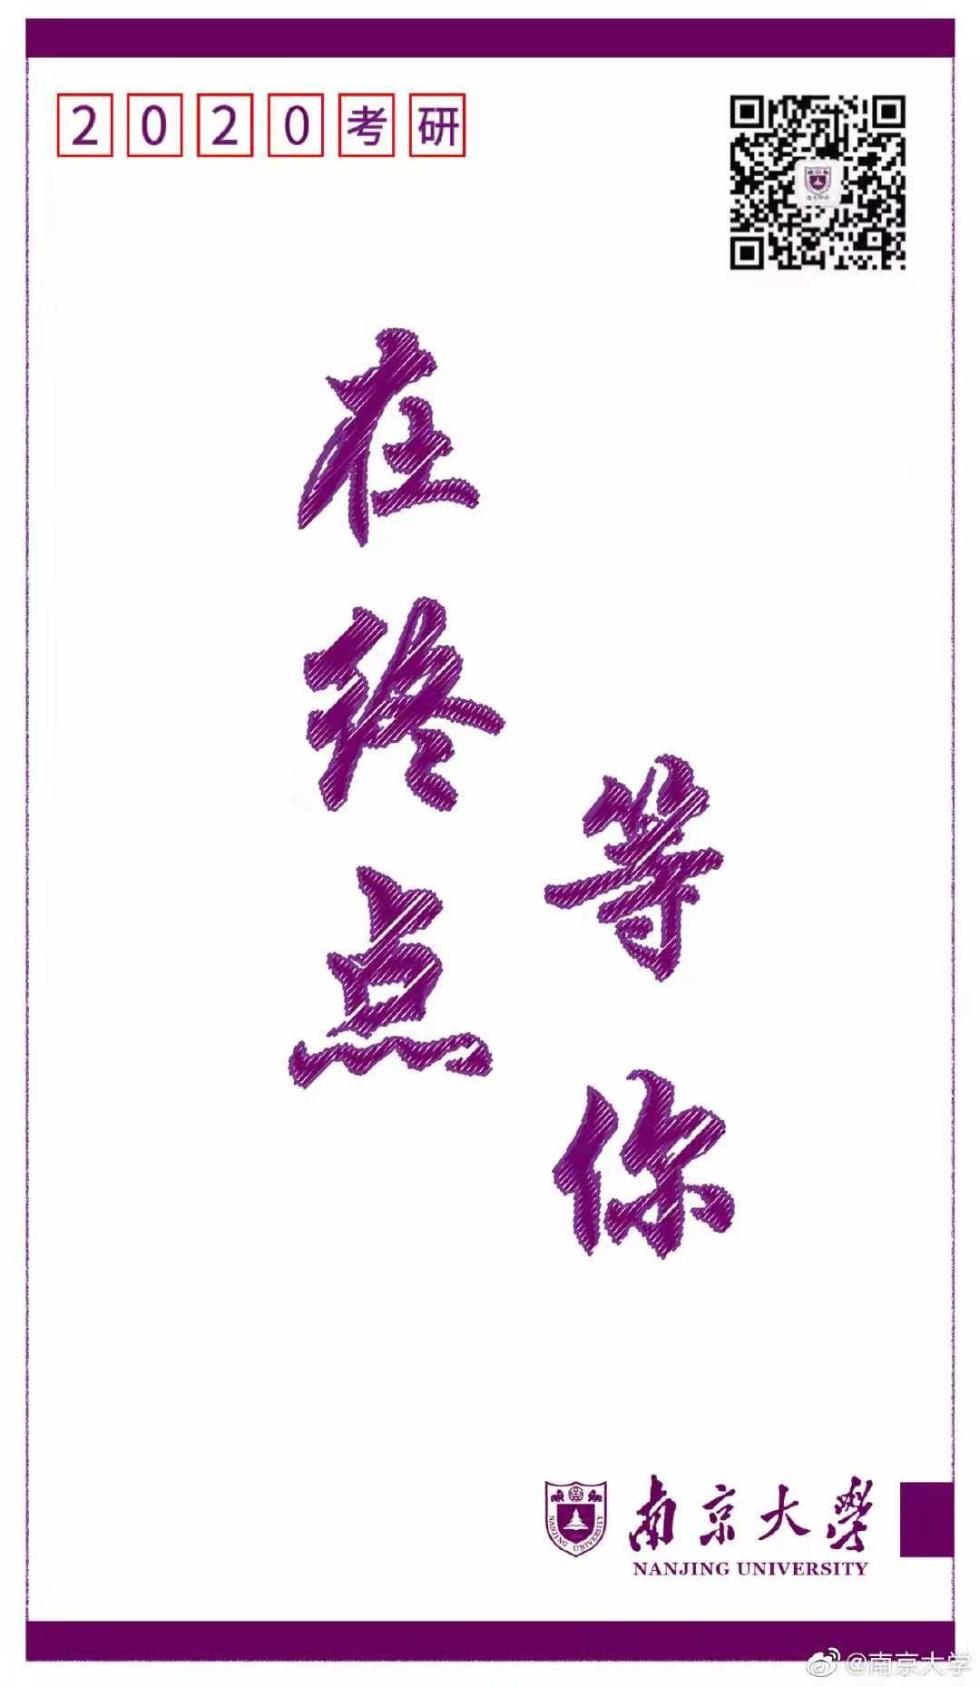 2020考研
在终点
等你
南京大學
NANJING UNIVERSITY
NANJING UNIVERSITY
@南京大学